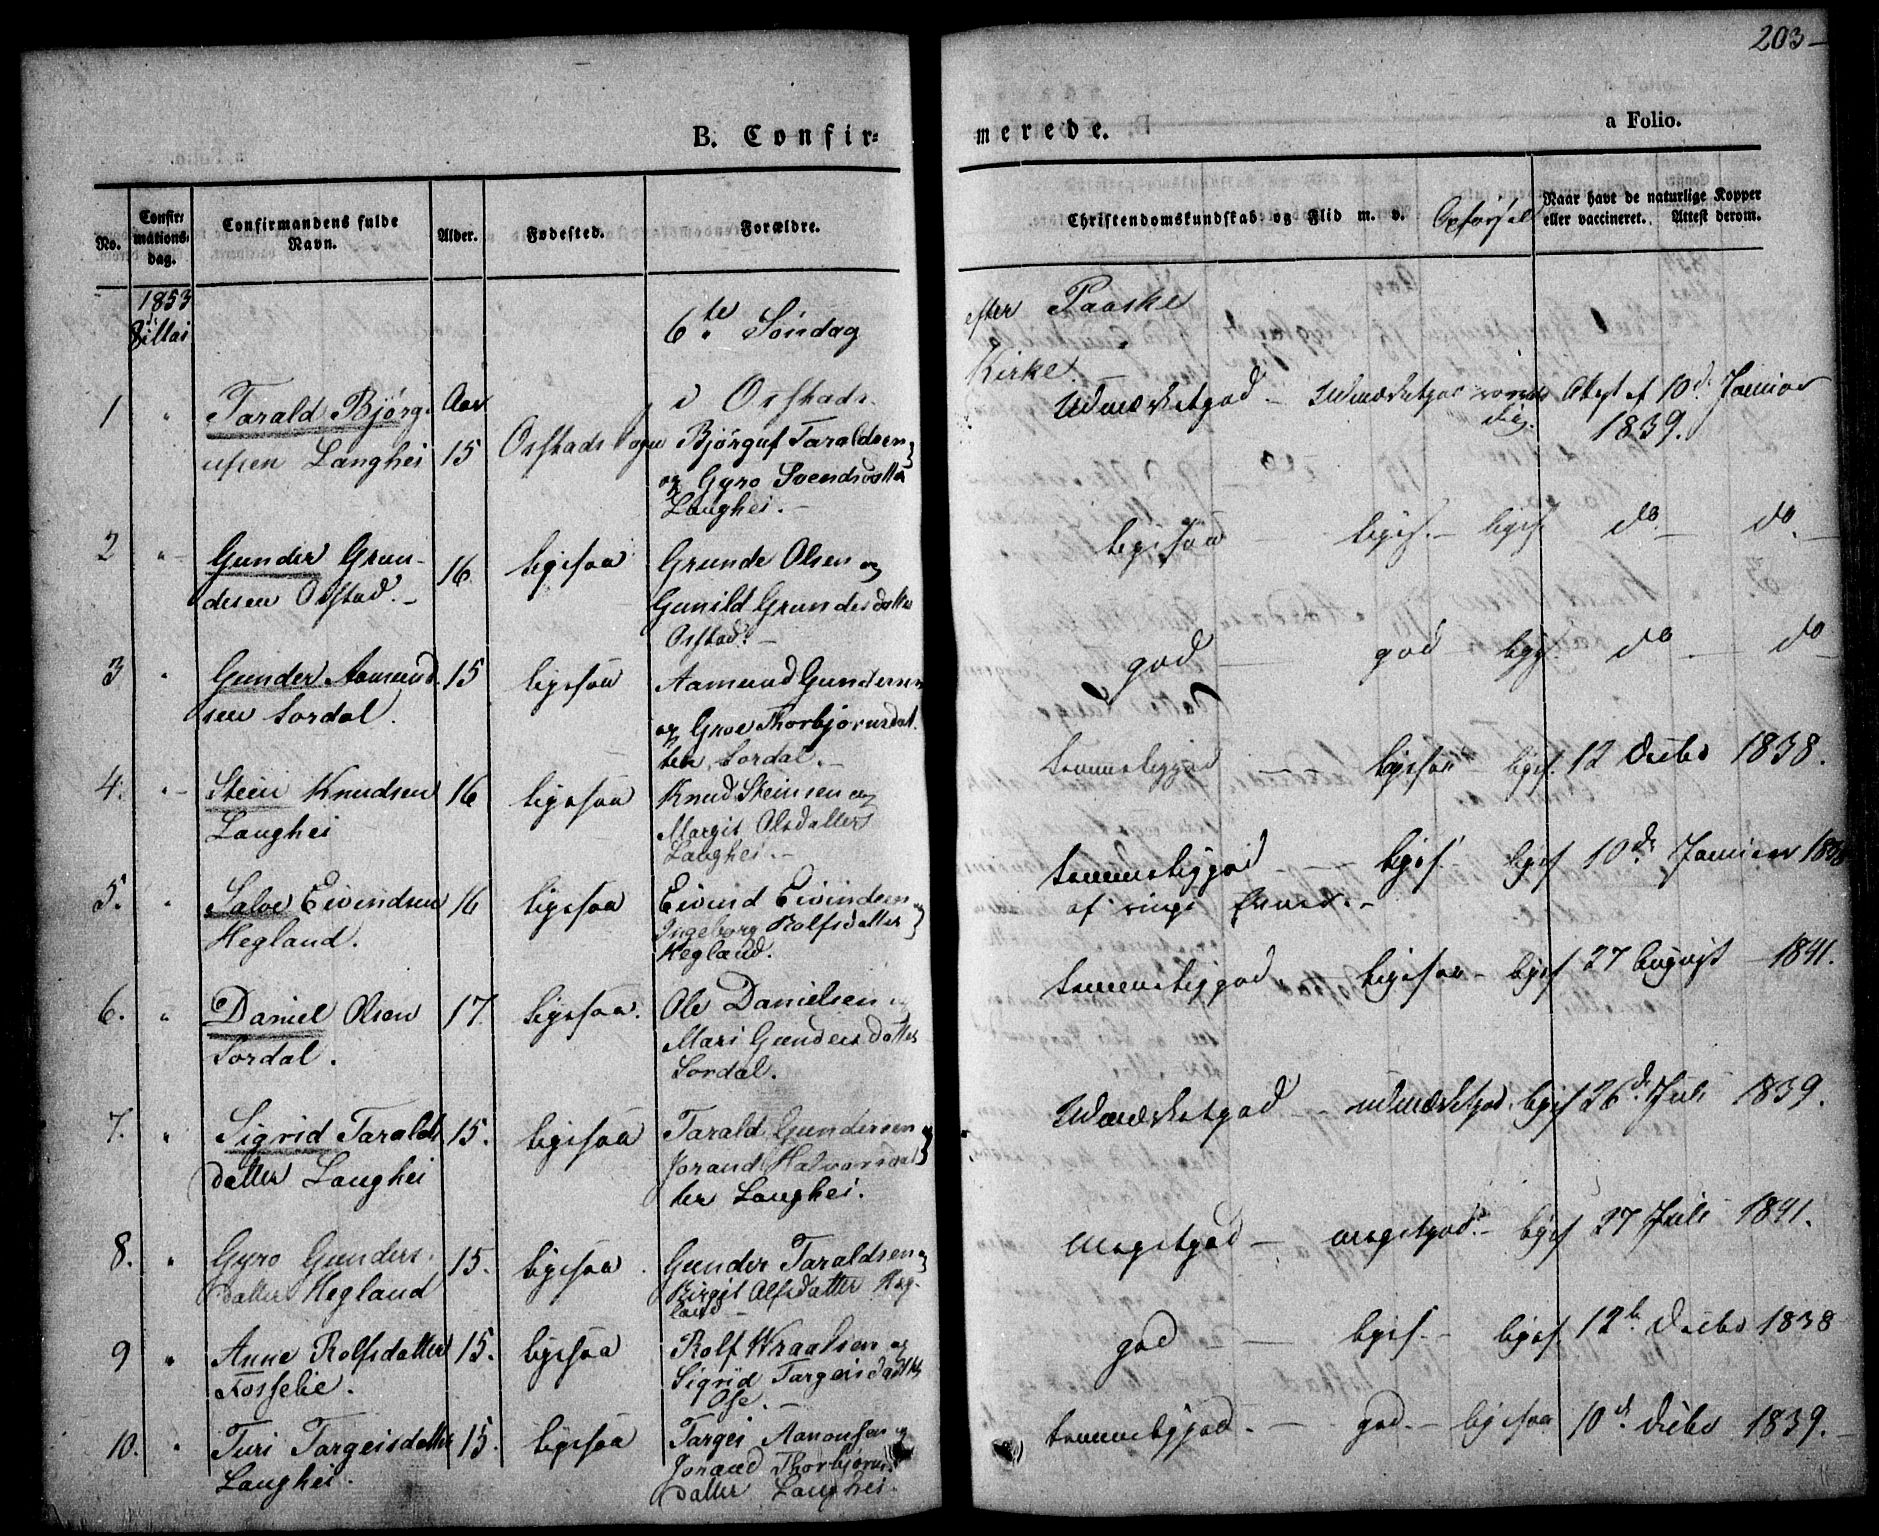 203
B. Confir-
merede.
a Folio.
No.
Confir-
mations-
dag.
Confirmandens fulde
Navn.
Alder.
Fødested.
Forældre.
Christendomskundskab og Flid m. v.
Opførsel
Naar havt de naturlige Kopper
eller vaccineret. Attest derom.
1853
8 Mai
6te Søndag efter Paaske
i Osstads Kirke.
1 " Tarald Bjørg-
ufsen Langhei
Aar
15
Osstads Sogn
Bjørguf Taraldsen
og Gyro Svendsdatter
Langhei.
Udmærketgod — Udmærketgod
Attest af 10de Januar
1839.
2 " Gunder Grun-
desen Osstad.
16
ligesaa
Grunde Olsen og
Gunild Grundesdatter
Osstad.
ligesaa — liges. — liges. do — do
3 " Gunder Aamund-
sen Sordal.
15
ligesaa
Aamund Gundersen
og Groe Thorbjørnsdat-
ter Sordal.
god — god — liges. do — do
4. " Stein Knudsen
Langhei
16
ligesaa
Knud Steinsen og
Margit Olsdatter
Langhei.
temmeliggod — ligesaa — liges. 12 Decbr 1838.
5. " Salve Eivindsen
Hegland.
16
ligesaa
Eivind Eivindsen og
Ingeborg Rolfsdatter
Hegland.
temmeliggod — liges. — liges 10de Januar
6. " Daniel Olsen
Sordal.
17.
ligesaa.
Ole Danielsen og
Mari Gundersdatter
Sordal.
temmeliggod — ligesaa — liges 27 August 1841.
7. " Sigrid Taralds-
datter Langhei
15.
ligesaa
Tarald Gundersen og
Jorand Halvorsdat-
ter Langhei.
Udmærketgod — udmærketgod. liges 26de Juli 1839.
8. " Gyro Gunders-
datter Hegland
15.
ligesaa
Gunder Taraldsen og
Birgit Alfsdatter Heg-
land
Megetgod — megetgod. — liges 27 Juli 1841.
9 " Anne Rolfsdatter
Fosselie.
15.
ligesaa
Rolf Wraalsen og
Sigrid Targeisdatter
Ose.
god — liges. — liges. 12te Decbr 1838
10. " Turi Targeisdatter
Langhei.
15.
ligesaa
Targei Aanonsen og
Jorand Thorbjørns-
datter Langhei.
temmeliggod. — god. — ligesaa 10de Decbr 1839.